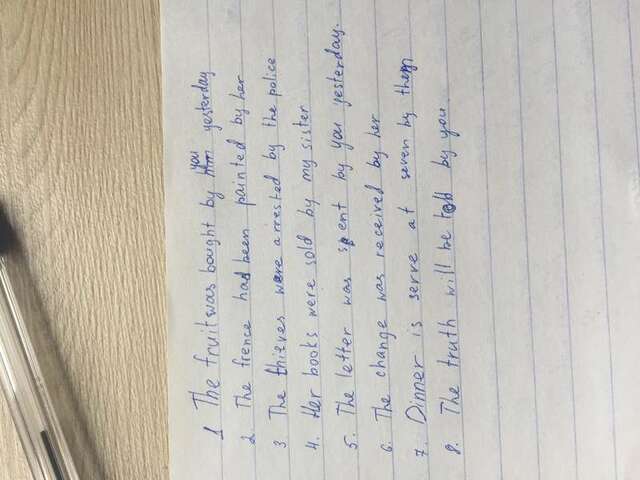 1 The fruit was bought by you yesterday
2. The frence had been painted by her
3 The thieves were arrested by the police
4. Her books were sold by my sister
5. The letter was spent by you yesterday.
6. The change was received by her
7. Dinner is serve at seven by them
8. The truth will be told by you.